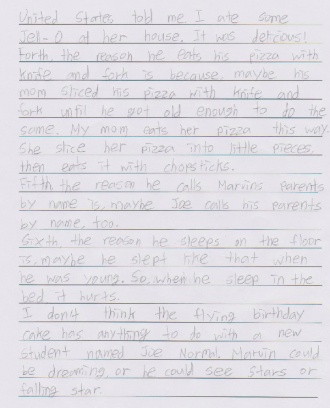 United States told me I ate some
Jell-O at her house. It was delicious!
Forth, the reason he eats his pizza with
knife and fork is because, maybe his
mom sliced his pizza with knife and
fork until he got old enough to do the
same. My mom eats her pizza this way.
She slice her pizza into little pieces.
then eats it with chopsticks.
Fifth the reason he calls Marvins parents
by name is, maybe Joe calls his parents
by name, too.
Sixth the reason he sleeps on the floor
is, maybe he slept like that when
he was young. So, when he sleep in the
bed it hurts.
I don't think the flying birthday
cake has anything to do with a new
student named Joe Normal. Marvin could
be dreaming or he could see stars or
falling star.